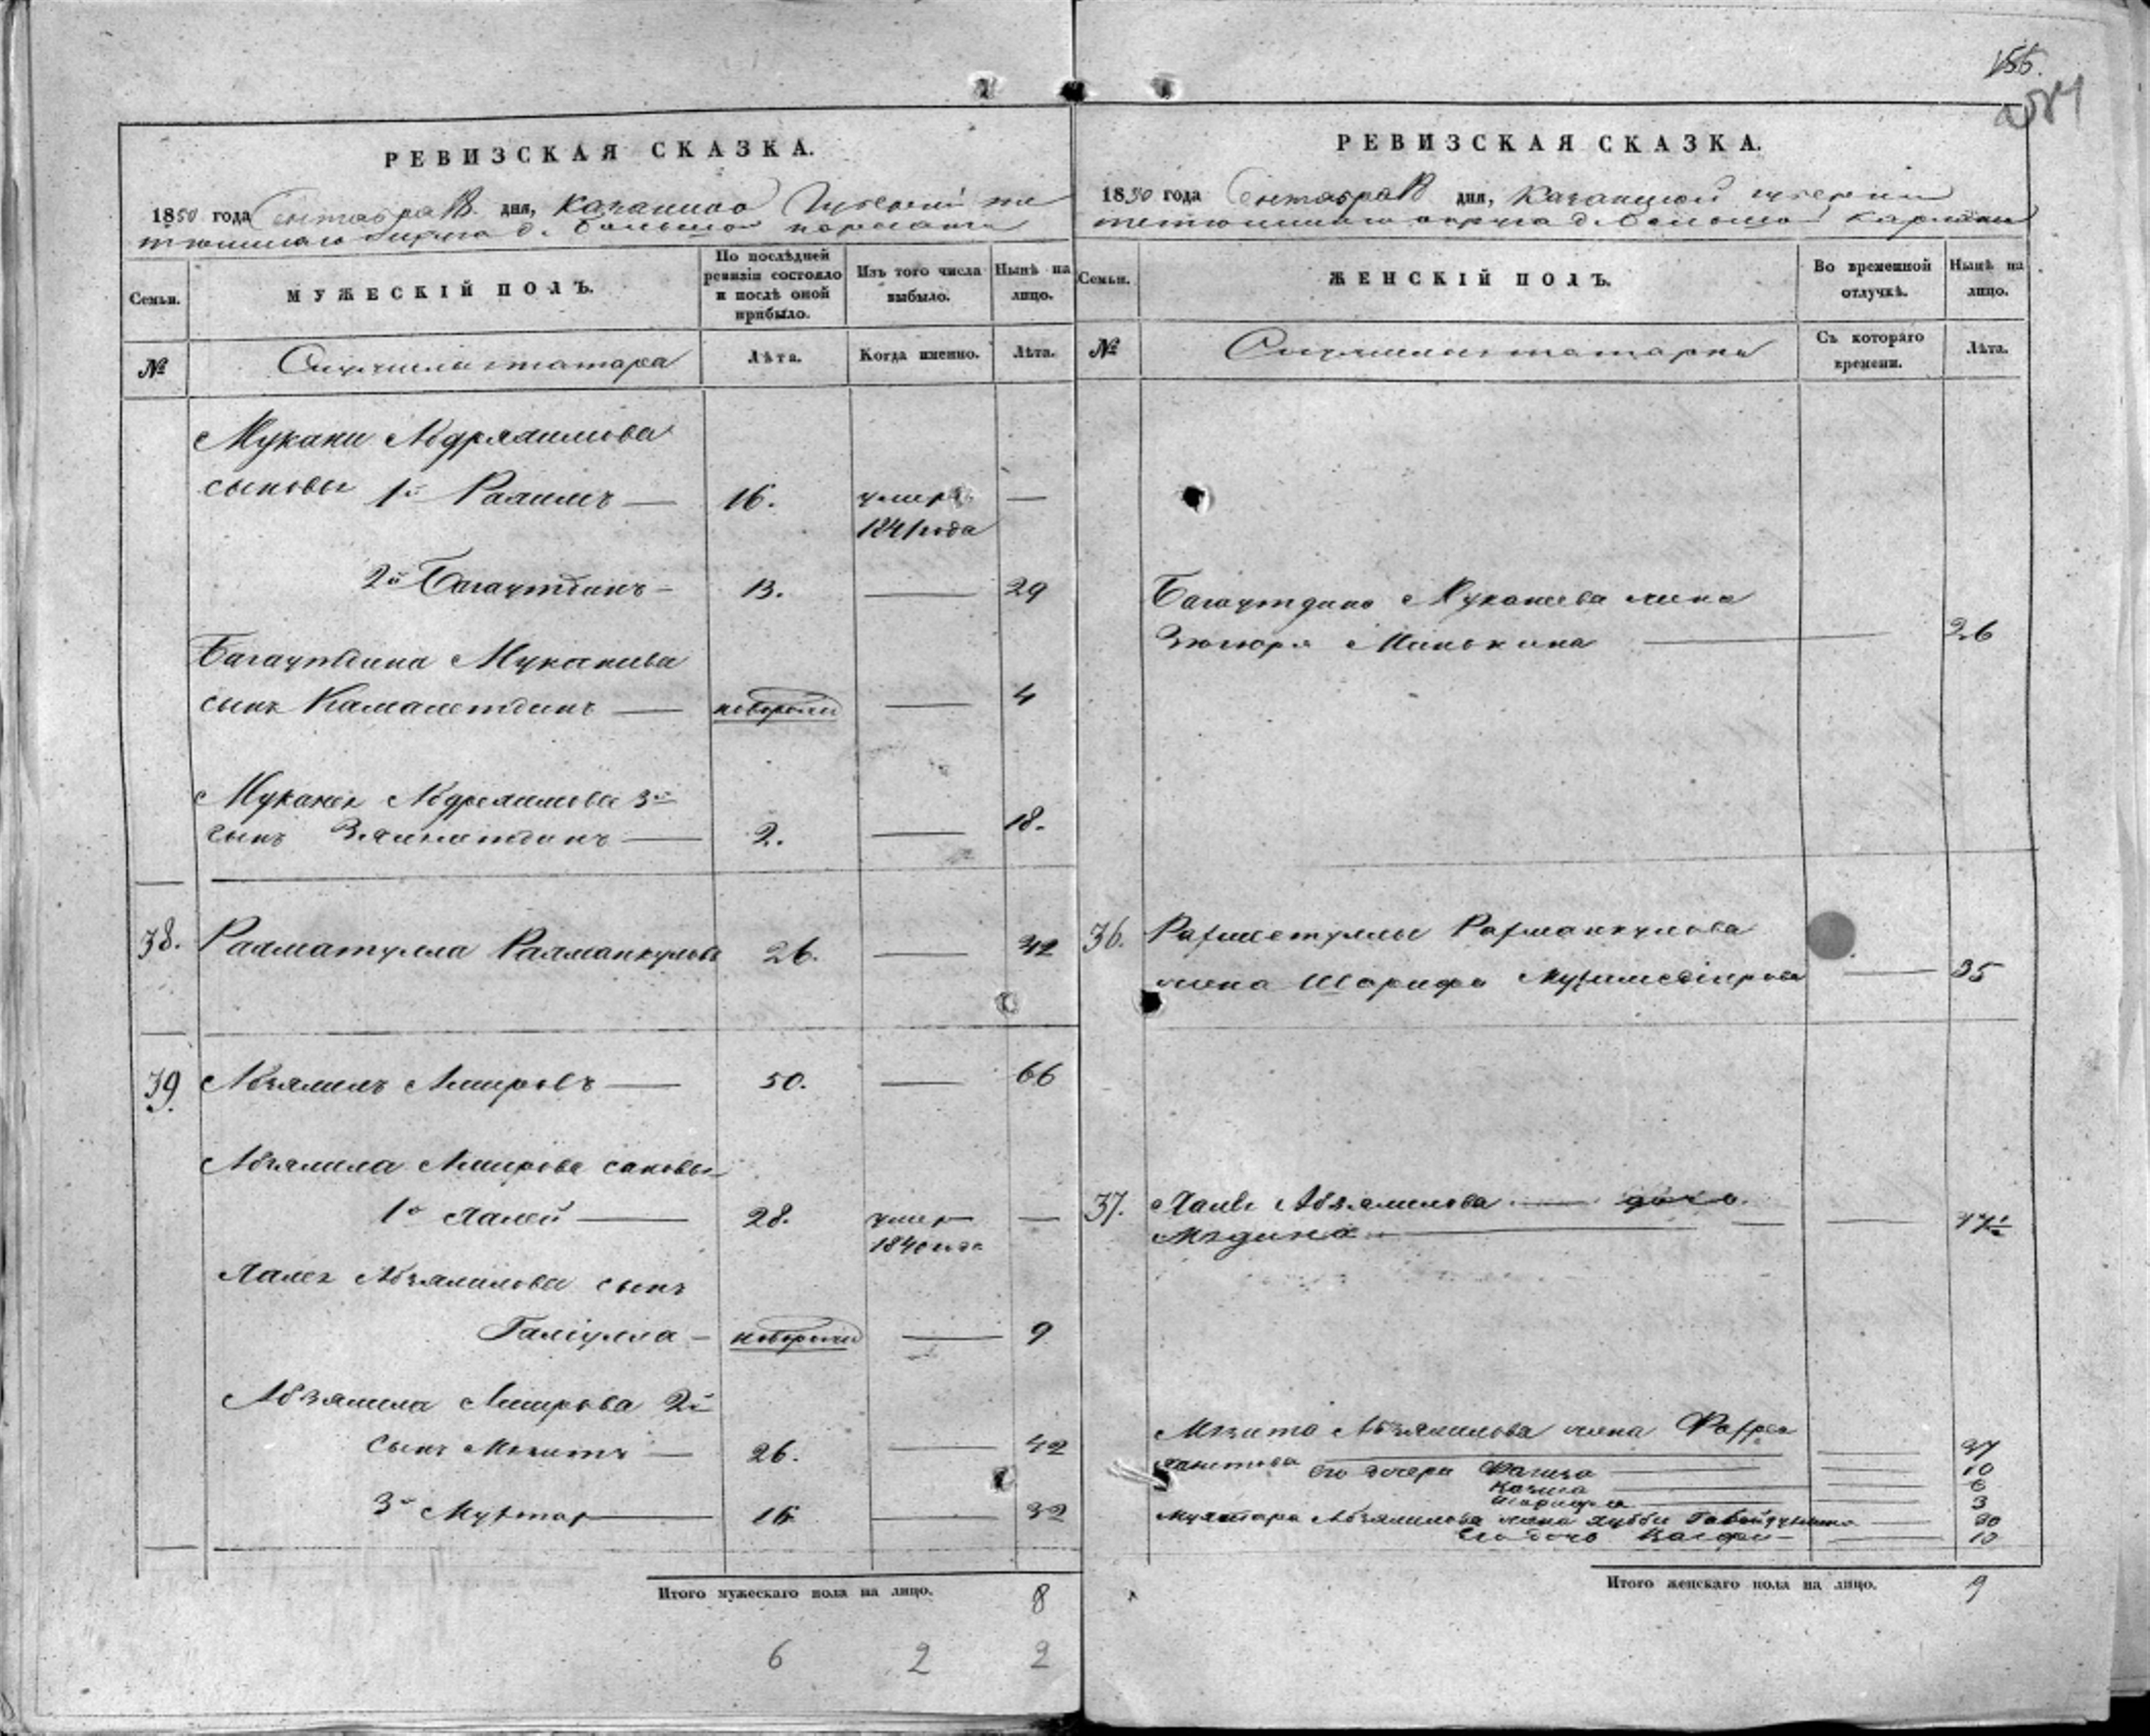 155.
РЕВИЗСКАЯ СКАЗКА.
1850 года Сентября 18 дня, Казанской Губернии те
тюшскаго округа д. Большой
Семьи.
МУЖЕСКІЙ ПОЛЪ.
По послѣдней
ревизіи состояло
и послѣ оной
прибыло.
Изъ того числа
выбыло.
Нынѣ на
лицо.
№
татара
Лѣта.
Когда именно.
Лѣта.
Мукани Абдряхимова
сыновья 1й Рахимъ — 16. умеръ —
1841 года
2й Багаутдинъ — 13. — 29
Багаутдина Муканева
сынъ Камалетдинъ — новорожд — 4
Муканея Абдряхимова 3й
сынъ — 2. — 18.
38. Рахматулла Рахманкуловъ 26. — 42
39. Абзялилъ Амировъ — 50. — 66
Абзялила Амирова сыновья
1й Халей — 28. умеръ —
1840 года
Халея Абзялилова сынъ
Галіулла — новорожд — 9
Абзялила Амирова 2й
сынъ Мязитъ — 26. — 42
3й Мухтар — 16 — 32
Итого мужескаго пола на лицо. 8
6 2 2
РЕВИЗСКАЯ СКАЗКА.
1850 года Сентября 18 дня, Казанской губерніи
тетюшскаго округа д. Большой
Семьи.
ЖЕНСКІЙ ПОЛЪ.
Во временной
отлучкѣ.
Нынѣ на
лицо.
№
татарки
Съ котораго
времени.
Лѣта.
Багаутдина Муканеева жена
Зюгюря — 26
36. Рахметуллы Рахманкулова
жена Шарифа — 35
37. Халея Абзялилова — дочь
Мядина —
Мязита Абзялилова жена
его дочери — 10
— 6
— 3
Мухтара Абзялилова жена — 30
Его дочь — 10
Итого женскаго пола на лицо. 9